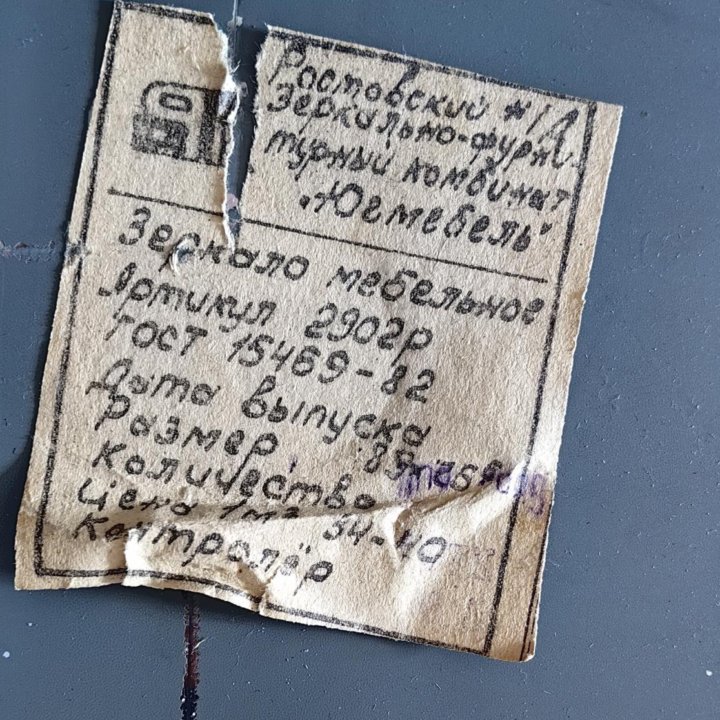 Ростовский
Зеркально-фурни-
турный комбинат
„Югмебель"
Зеркало мебельное
Артикул 2902р
ГОСТ 15469-82
Дата выпуска
Размер
Количество
Цена 1м2 54-40
Контролёр